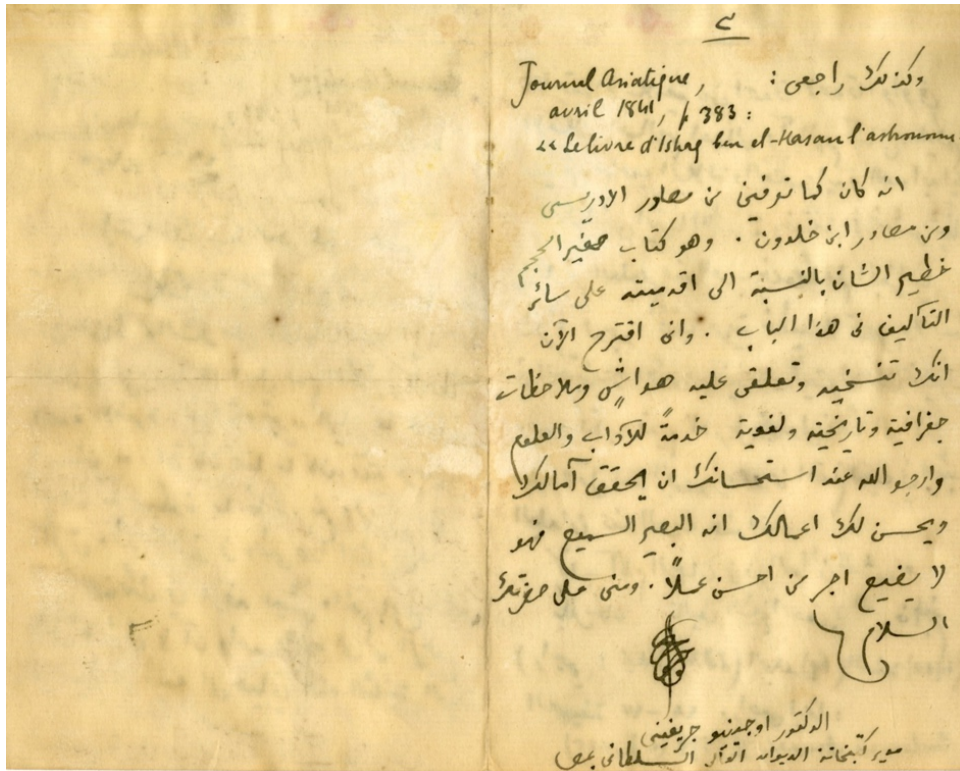 ٣
وكذلك راجعى : Journal Asiatique,
avril 1841, p 383 :
«Le livre d'Ishaq ben el-Hasan l'astronome
انه كان كما توفين من مصادر الادريسى
ومن مصادر ابن خلدون . وهو كتاب صغير الحجم
عظيم الشان بالنسبة الى اقدميته على سائر
التآليف فى هذا الباب . وانى اقترح الآن
انك تنسخيه وتعلقى عليه هواشٍ وملاحظات
جغرافية وتاريخية ولغوية خدمةً للآداب والعلوم
وارجو الله عند استحسانك ان يحقق آمالك
ويحسن لك اعمالك انه البصير السميع فهو
لا يضيع اجر من احسن عملاً . ومنى على حضرتك
السلام
الدكتور اوجينيو جريفينى
مدير كتبخانة الديوان العالى السلطانى بمصر